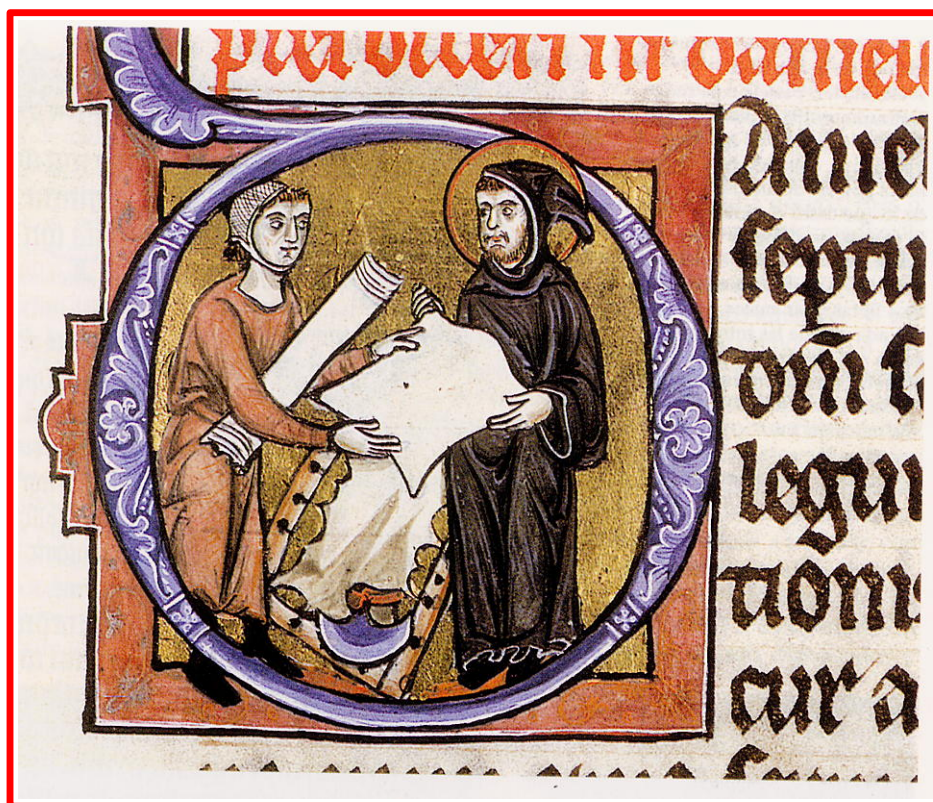 in daniel
DAniel
septu
dñi s
legun
tionis
cur a